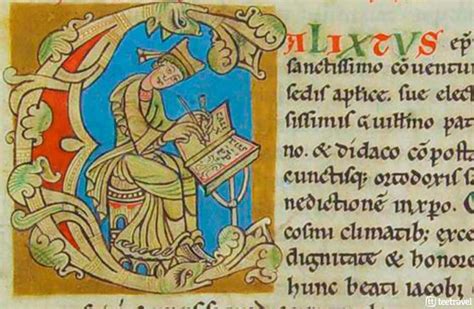 ALIXTVS ep̄.
sanctissimo cōventui
sedis aplice. sue elect
sissimis Guillmo pat
no. & didaco cōpost
cunctisq; ortodoxis s
nedictionem inxp̄o. C
cosmi climatib; exce
dignitate & honore
hunc beati iacobi
teetravel